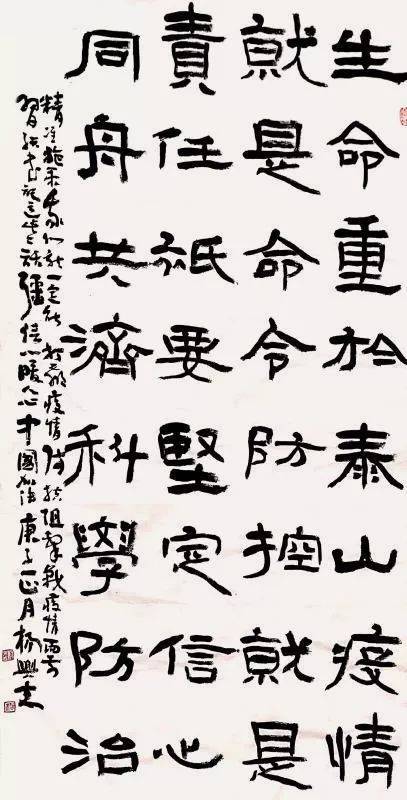 生命重於泰山疫情
就是命令防控就是
責任祇要堅定信心
同舟共濟科學防治
精准施策我们就一定能打赢疫情防控阻擊戰疫情面前
習總书記這些話彊信心暖人心中國加油庚子正月楊興